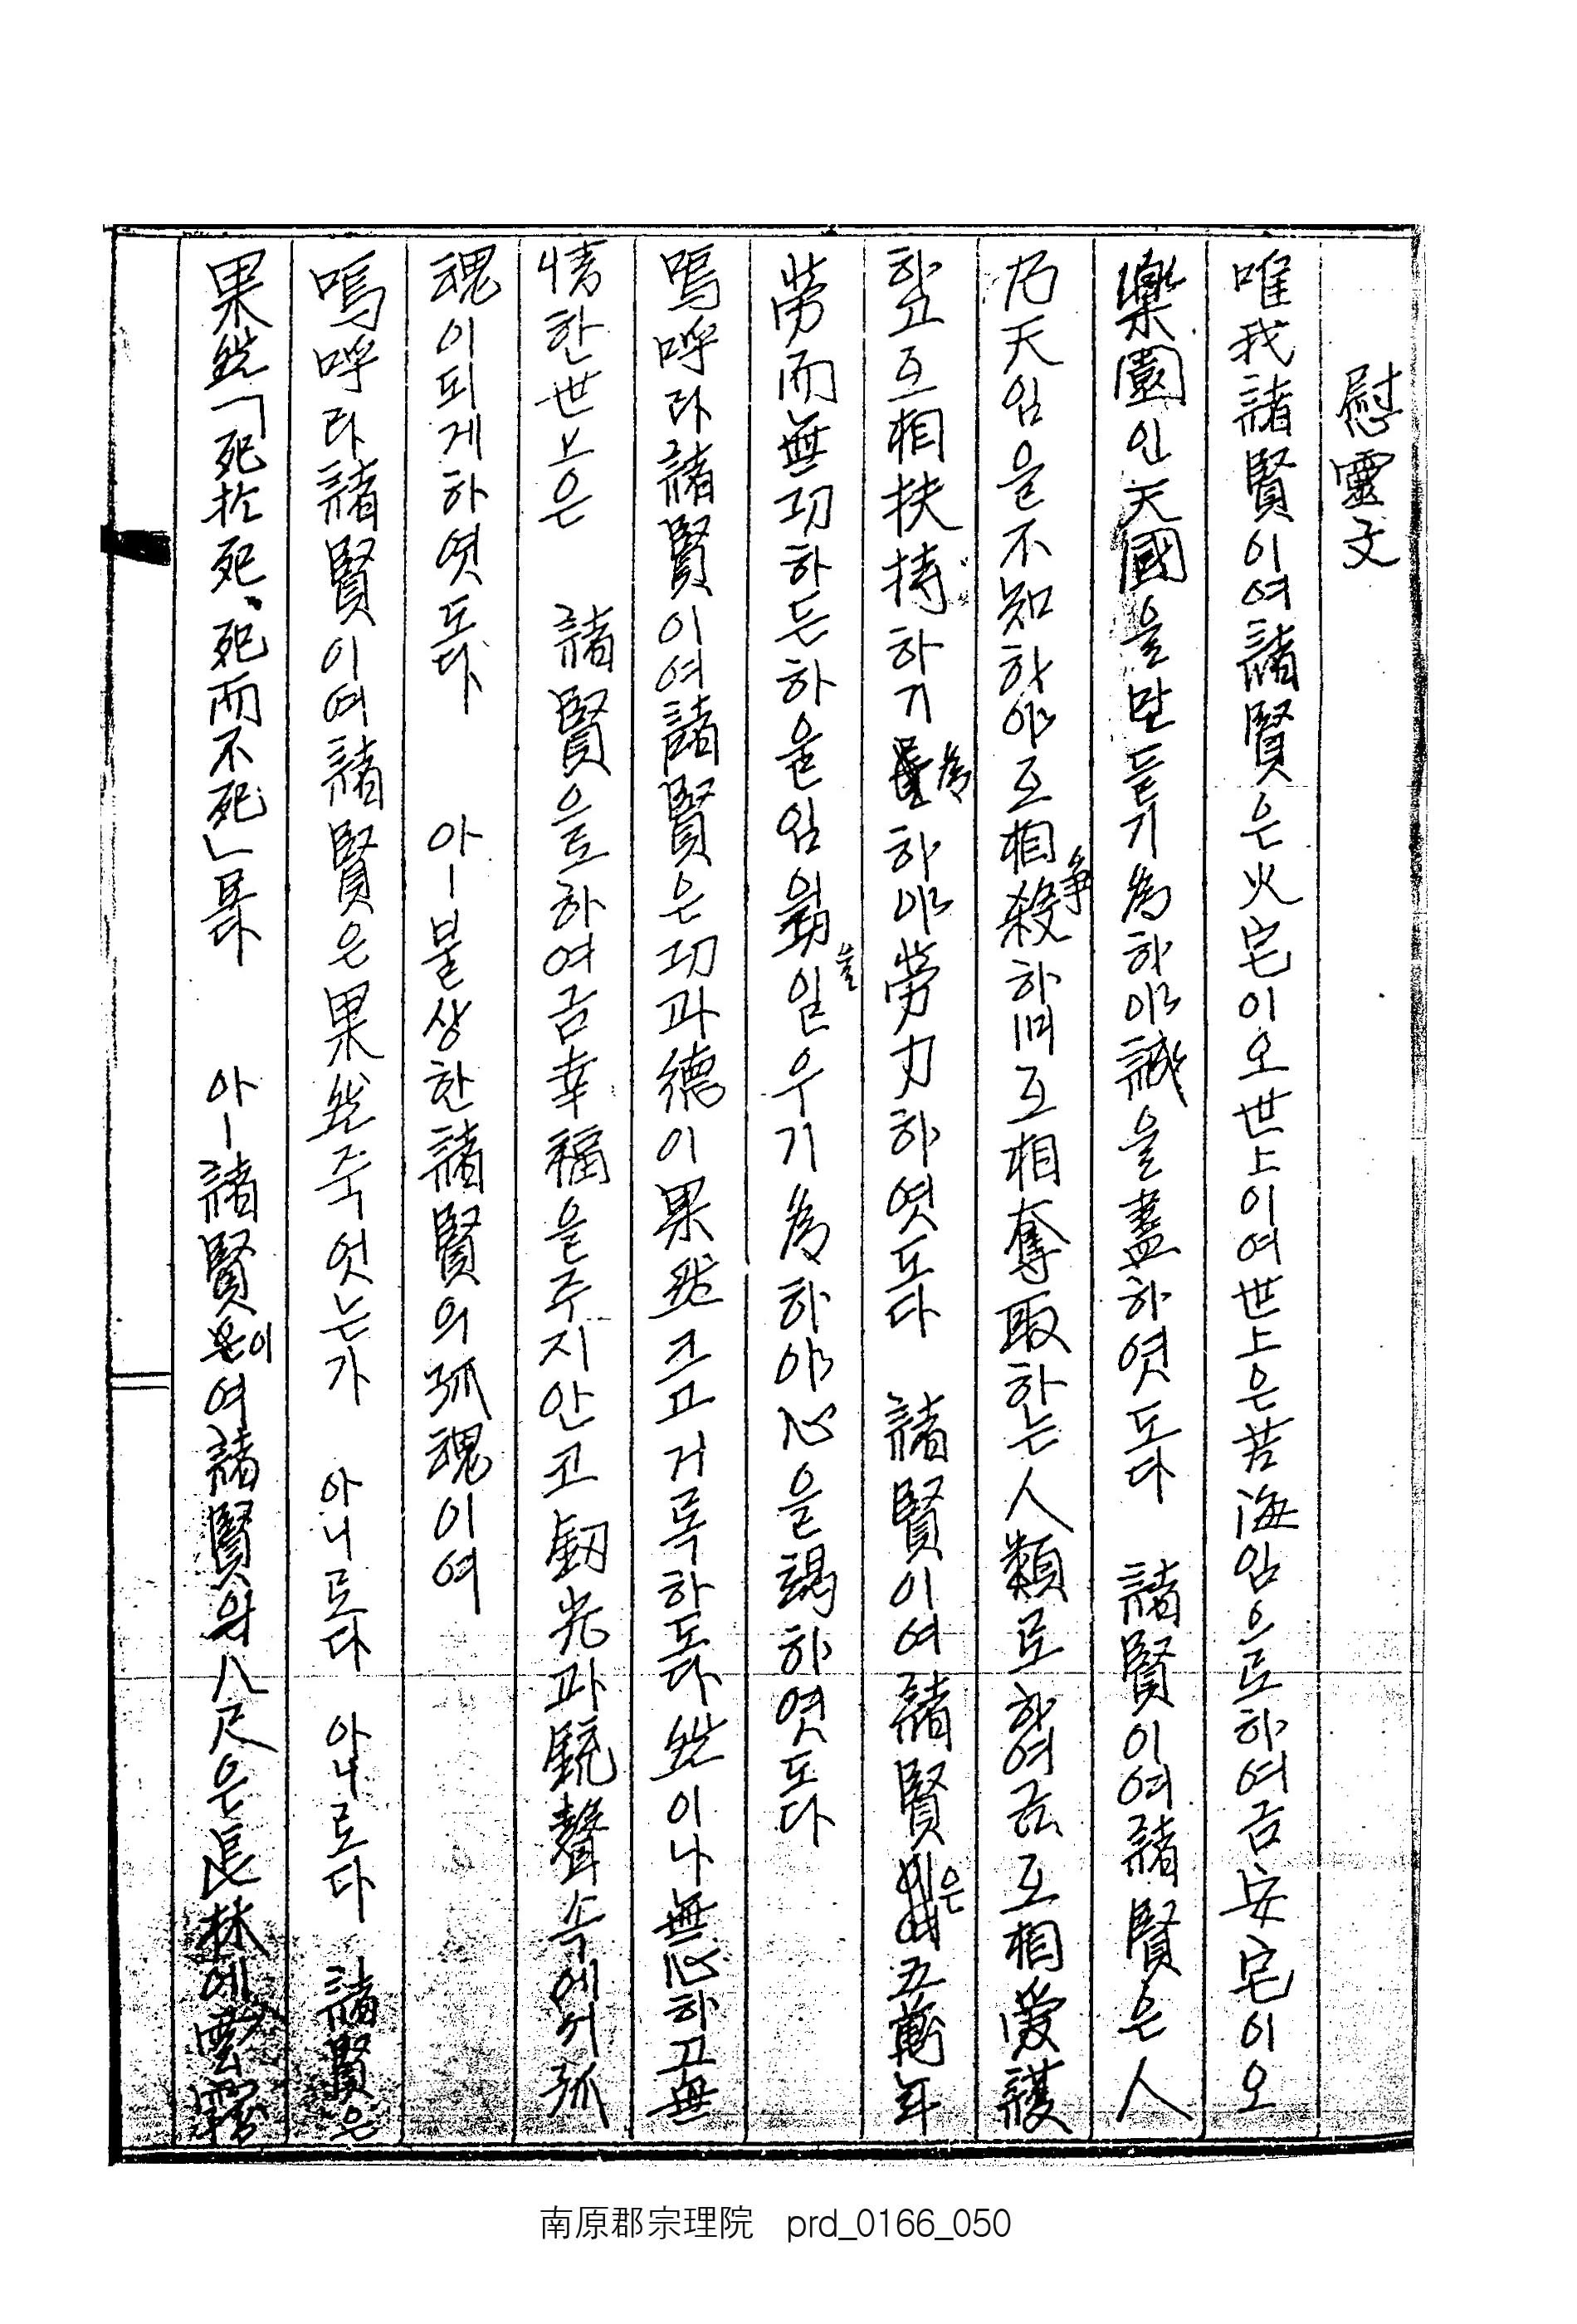 慰靈文
唯我諸賢이여諸賢은火宅이오世上이여世上은苦海임으로하여금安宅이오
樂園인天國을만들기爲하야誠을盡하엿도다 諸賢이여諸賢은人
乃天임을不知하야互相殺爭하며互相奪取하는人類로하여금互相愛護
하고互相扶持하기爲하야勞力하엿도다 諸賢이여諸賢은五萬年
勞而無功하든하울임 을일우기爲하야心을竭하엿도다
嗚呼라諸賢이여諸賢은功과德이果然크고거룩하도다然이나無心하고無
情한世上은 諸賢을로하여금幸福을주지안고釼光과銃聲속에서孤
魂이되게하엿도다 아ㅡ불상한諸賢의孤魂이여
嗚呼라諸賢이여諸賢은果然죽엇는가 아니로다 아니로다 諸賢은
果然「死於死、死而不死」로다 아ㅡ諸賢이여諸賢의八尺은長林에雲霧
南原郡宗理院 prd_0166_050